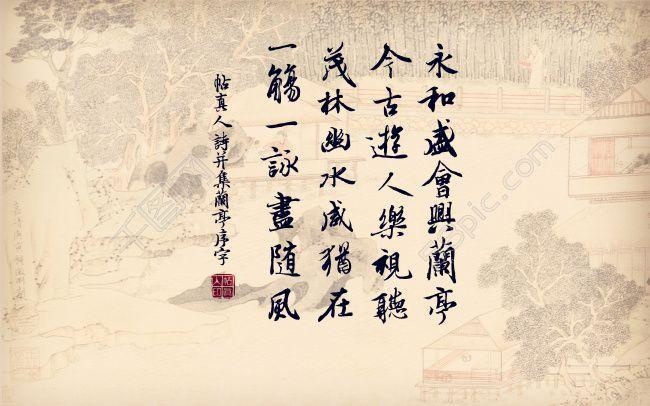 永和盛會興蘭亭
今古遊人樂視聽
茂林幽水感猶在
一觴一詠盡隨風
帖真人詩并集蘭亭序字